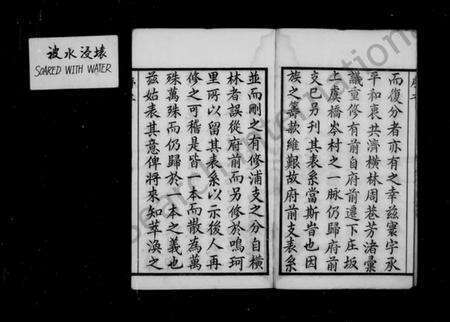 被水浸壞
SOAKED WITH WATER
序二
而復分者亦有之幸茲寰宇承
平和衷共濟橫林周巷芳渚彙
議重修有前自府前遷下庄坂
上虞播岑村之一脉仍歸府前
支已另刊其表系當斯昔也因
族之籌款維艱故府前支表系
並而刪之有修浦支之分自橫
林者誤從府前而另修於鳴珂
里所以留其表系以示後人再
修之可稽是皆一本而散為萬
殊萬殊而仍歸於一本之義也
茲姑表其意俾將來知萃渙之